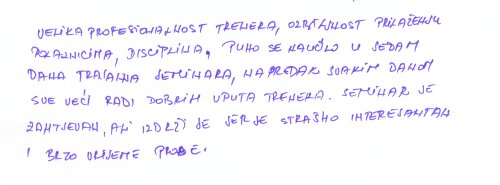 VELIKA PROFESIONALNOST TRENERA, OZBILJNOST PRILAŽENJU
POLAZNICIMA, DISCIPLINA. PUNO SE NAUČILO U SEDAM
DANA TRAJANJA SEMINARA, NAPREDAK SVAKIM DANOM
SVE VEĆI RADI DOBRIH UPUTA TRENERA. SEMINAR JE
ZAHTJEVAN, ALI IZDRŽI SE JER JE STRAŠNO INTERESANTAN
I BRZO VRIJEME PROĐE.